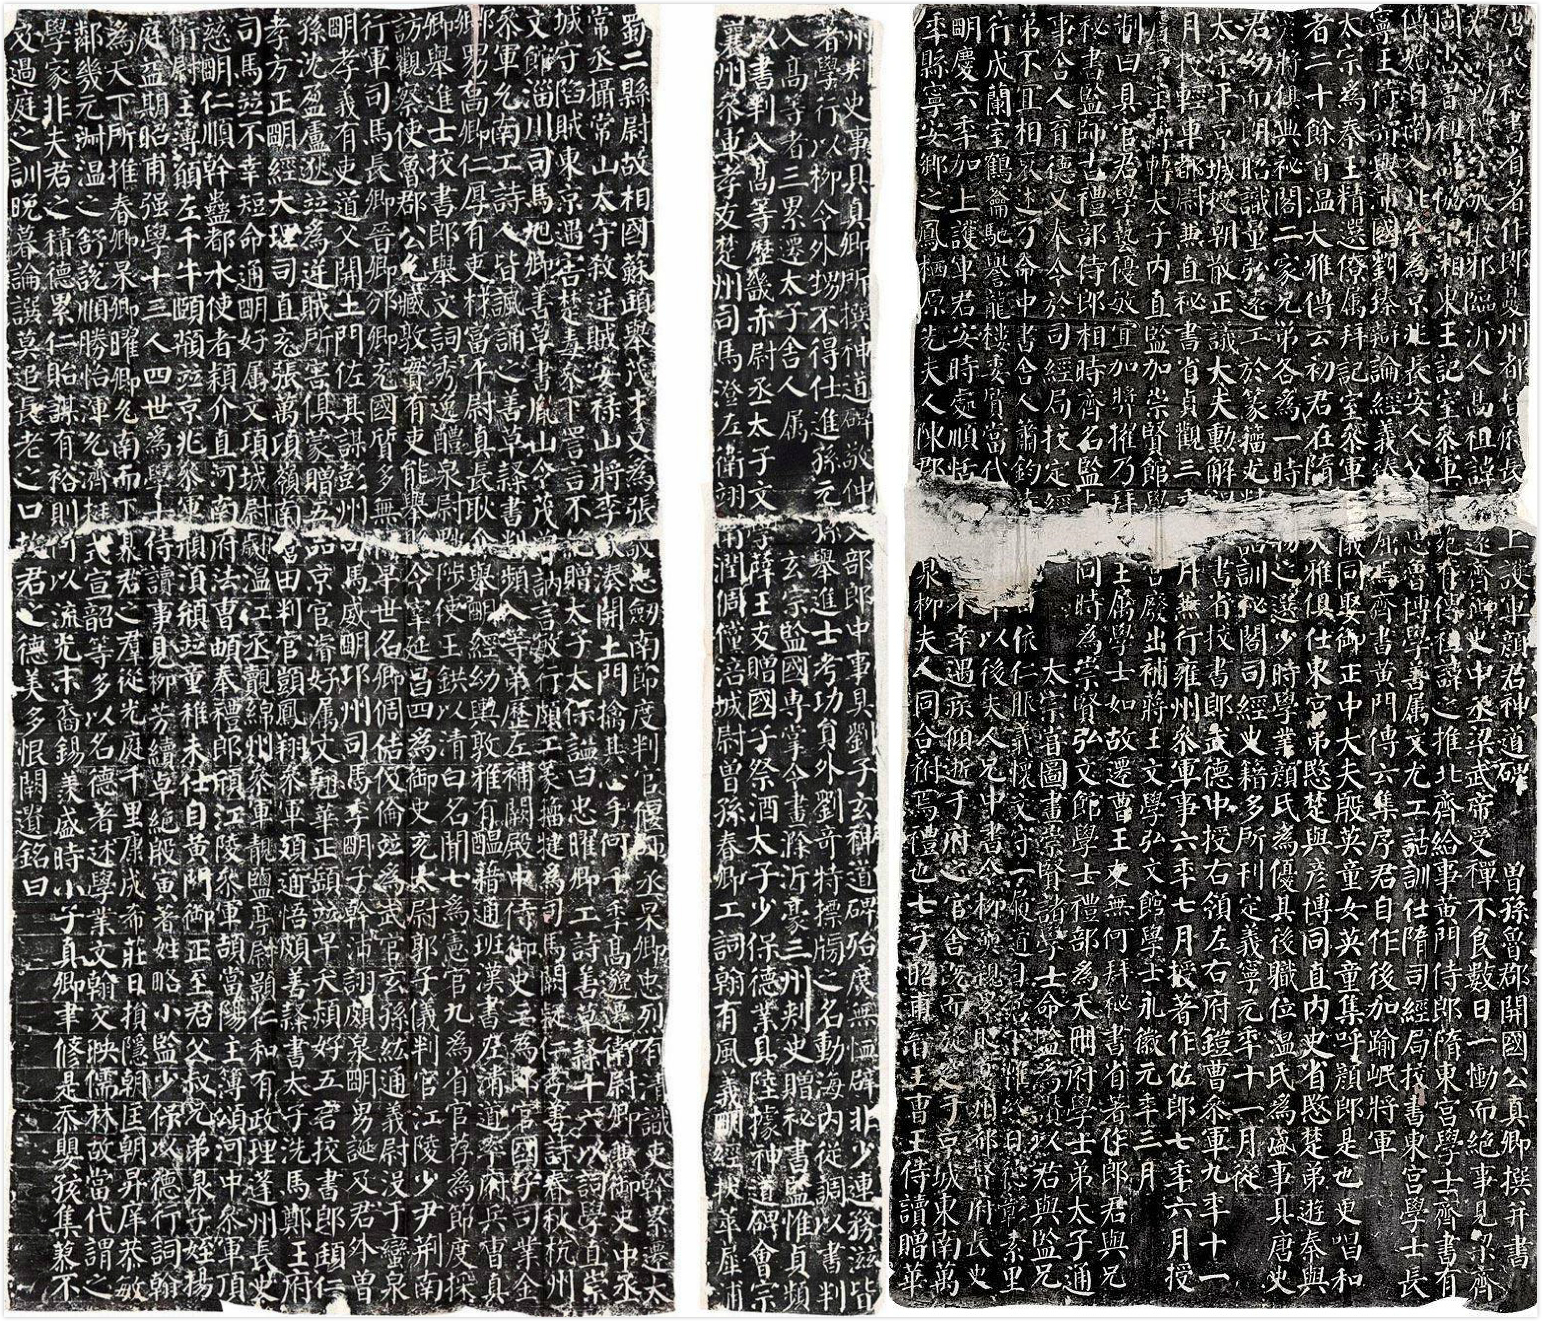 唐故秘書省著作郎夔州都督府長史上護軍顏君神道碑 曾孫魯郡開國公真卿撰并書
君諱勤禮字敬琅邪臨沂人高祖諱見遠齊御史中丞梁武帝受禪不食數日一慟而絕事見梁齊
周書曾祖諱協梁湘東王記室參軍文苑有傳祖諱之推北齊給事黃門侍郎隋東宮學士齊書有
傳始自南入北今為京兆長安人父諱思魯博學善屬文尤工詁訓仕隋司經局校書東宮學士長
寧王侍讀與沛國劉臻辯論經義臻屢屈焉齊書黃門傳云集序君自作後加踰岷將軍
太宗為秦王精選僚屬拜記室參軍儀同娶御正中大夫殷英童女英童集呼顏郎是也更唱和
者二十餘首溫大雅傳云初君在隋大雅俱仕東宮弟愍楚與彥博同直內史省愍楚弟遊秦與
彥將俱典祕閣二家兄弟各為一時物之選少時學業顏氏為優其後職位溫氏為盛事具唐史
君幼而朗晤識量弘遠工於篆籀尤精詁訓祕閣司經史籍多所刊定義寧元年十一月從
太宗平京城授朝散正議大夫勳解書省校書郎武德中授右領左右府鎧曹參軍九年十一
月授輕車都尉兼直祕書省貞觀三年月兼行雍州參軍事六年七月授著作佐郎七年六月授
詹事主簿轉太子內直監加崇賢館學宮廢出補蔣王文學弘文館學士永徽元年三月
制曰具官君學藝優敏宜加獎擢乃拜王屬學士如故遷曹王友無何拜祕書省著作郎君與兄
祕書監師古禮部侍郎相時齊名監同時為崇賢弘文館學士禮部為天冊府學士弟太子通
事舍人育德又奉令於司經局校定經 太宗嘗圖畫崇賢諸學士命監為讚以君與監兄
弟不宜相褒述乃命中書舍人蕭鈞依仁服義懷文守一履道自居下帷終日德彰素里
行成蘭室鶴籥馳譽龍樓委質當代以後夫人兄中書令柳奭親累貶夔州都督府長史
明慶六年加上護軍君安時處順恬不幸遇疾傾逝于府之官舍既而旋窆于京城東南萬
年縣寧安鄉之鳳栖原先夫人陳郡泉柳夫人同合祔焉禮也七子昭甫晉王曹王侍讀贈華
州刺史事具真卿所撰神道碑敬仲吏部郎中事具劉子玄神道碑殆庶無恤辟非少連務滋皆
著學行以柳令外甥不得仕進孫元孫舉進士考功員外劉奇特標牓之名動海內從調以書判
入高等者三累遷太子舍人屬 玄宗監國專掌令畫滁沂豪三州刺史贈祕書監惟貞頻
以書判入高等歷畿赤尉丞太子文學薛王友贈國子祭酒太子少保德業具陸據神道碑會宗
襄州參軍孝友楚州司馬澄左衛翊衛潤倜儻涪城尉曾孫春卿工詞翰有風義明經拔萃犀浦
蜀二縣尉故相國蘇頲舉茂才又為張敬忠劍南節度判官偃師丞杲卿忠烈有清識吏幹累遷太
常丞攝常山太守殺逆賊安祿山將李欽湊開土門擒其心手何千年高邈遷衛尉卿兼御史中丞
城守陷賊東京遇害楚毒參下詈言不絕贈太子太保諡曰忠曜卿工詩善草隸十六以詞學直崇
文館淄川司馬旭卿善草書胤山令茂曾訥言敏行頗工篆籀犍為司馬闕疑仁孝善詩春秋杭州
參軍允南工詩人皆諷誦之善草隸書判頻入等第歷左補闕殿中侍御史三為郎官國子司業金
鄉男喬卿仁厚有吏材富平尉真長耿介舉明經幼輿敦雅有醞藉通班漢書左清道率府兵曹真
卿舉進士校書郎舉文詞秀逸醴泉尉黜陟使王鉷以清白名聞七為憲官九為省官荐為節度採
訪觀察使魯郡公允臧敦實有吏能舉縣令宰延昌四為御史充太尉郭子儀判官江陵少尹荊南
行軍司馬長卿晉卿邠卿充國質多無祿早世名卿倜佶伋倫並為武官玄孫紘通義尉沒于蠻泉
明孝義有吏道父開土門佐其謀彭州司馬威明邛州司馬季明子幹沛詡頗泉明男誕及君外曾
孫沈盈盧逖並為逆賊所害俱蒙贈五品京官濬好屬文翹華正頤並早夭熲好五言校書郎頲仁
孝方正明經大理司直充張萬頃嶺南營田判官顗鳳翔參軍頍通悟頗善隸書太子洗馬鄭王府
司馬並不幸短命通明好屬文項城尉翽溫江丞覿綿州參軍靚鹽亭尉顥仁和有政理蓬州長史
慈明仁順幹蠱都水使者穎介直河南府法曹頔奉禮郎頎江陵參軍頡當陽主簿頌河中參軍頂
衛尉主簿願左千牛頤頵並京兆參軍須頩並童稚未仕自黃門御正至君父叔兄弟息子姪揚
庭益期昭甫強學十三人四世為學士侍讀事見柳芳續卓絕殷寅著姓略小監少保以德行詞翰
為天下所推春卿杲卿曜卿允南而下泉君之羣從光庭千里康成希莊日損隱朝匡朝昇庠恭敏
鄰幾元淑溫之舒說順勝怡渾允濟挺式宣韶等多以名德著述學業文翰交映儒林故當代謂之
學家非夫君之積德累仁貽謀有裕則何以流光末裔錫羨盛時小子真卿聿修是忝嬰孩集蓼不
及過庭之訓晚暮論譔莫追長老之口故君之德美多恨闕遺銘曰